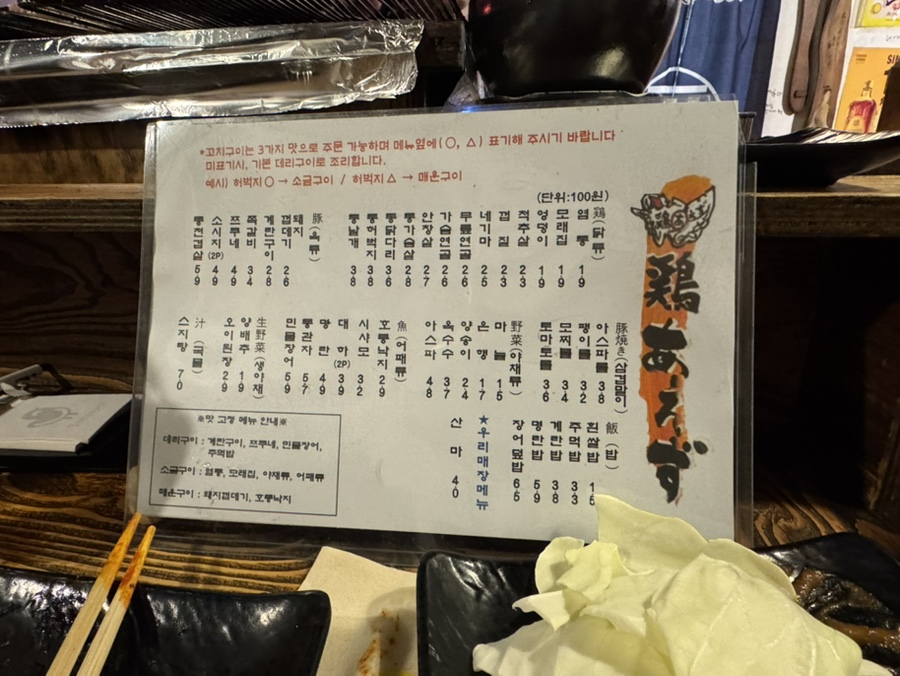 *꼬치구이는 3가지 맛으로 주문 가능하며 메뉴옆에(○, △) 표기해 주시기 바랍니다
미표기시, 기본 데리구이로 조리합니다.
예시) 허벅지○ → 소금구이 / 허벅지△ → 매운구이
(단위:100원)
鶏(닭류)
염통 19
모래집 19
엉덩이 19
적추살 23
껍질 23
네기마 25
무릎연골 26
가슴연골 26
안창살 27
통가슴살 28
통닭다리 36
통허벅지 38
통날개 38
豚(육류)
돼지껍데기 26
계란구이 28
쪽갈비 34
쯔쿠네 49
소시지(2P) 49
통천겹살 59
豚焼き(삼겹말이)
아스파 38
팽이롤 32
모찌롤 34
토마토롤 36
野菜(야채류)
마늘 15
은행 17
양송이 24
옥수수 37
아스파 48
魚(어패류)
호롱낙지 29
시샤모 32
대하(2P) 39
명란 49
통관자 57
민물장어 59
生野菜(생야채)
양배추 19
오이된장 29
汁(국물)
스지탕 70
飯(밥)
흰쌀밥 15
주먹밥 33
계란밥 38
명란밥 59
장어덮밥 65
★우리매장메뉴
산마 40
※맛 고정 메뉴 안내※
데리구이 : 계란구이, 쯔쿠네, 민물장어,
주먹밥
소금구이 : 염통, 모래집, 야채류, 어패류
매운구이 : 돼지껍데기, 호롱낙지
鶏あろず